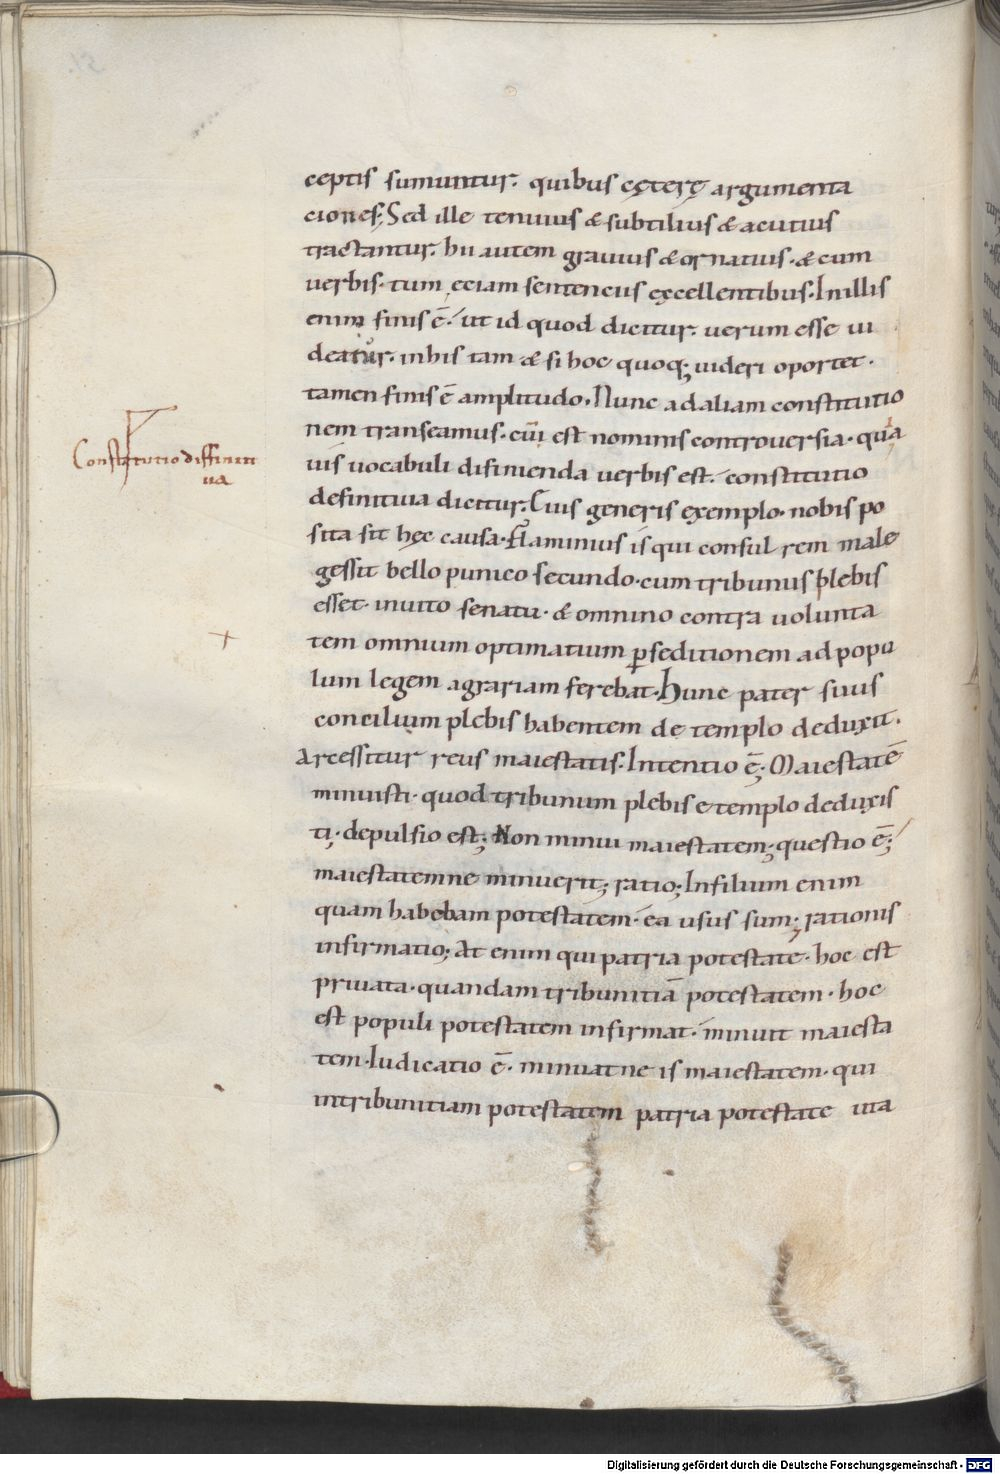 ceptis sumuntur. quibus cęterę argumenta
ciones; Sed ille tenuius & subtilius & acutius
tractantur. hii autem grauius & ornatius. & cum
uerbis. tum ęciam sentenciis excellentibus. In illis
enim finis ē. ut id quod dicitur. uerum esse ui
deatur. in his tam & si hoc quoq; uideri oportet.
tamen finis ē amplitudo. Nunc ad aliam constitutio
nem transeamus. cū est nominis controuersia. quia
Constitutio diffiniti
ua
uis uocabuli difinienda uerbis est. constitutio
definitiua dicitur. Cuis generis exemplo. nobis po
sita sit hęc causa. Flaminius is qui consul rem male
gessit bello punico secundo. cum tribunus plebis
esset. inuito senatu. & omnino contra uolunta
tem omnium optimatium p seditionem ad popu
lum legem agrariam ferebat. hunc pater suus
concilium plebis habentem de templo deduxit.
Arcessitur reus maiestatis. Intentio ē; Maiestatē
minuisti. quod tribunum plebis e templo deduxis
ti; depulsio est; Non minui maiestatem; questio ē;
maiestatemne minuerit; ratio; In filium enim
quam habebam potestatem. ea usus sum; rationis
infirmatio; At enim qui patria potestate. hoc est
priuata. quandam tribunitiā potestatem. hoc
est populi potestatem infirmat. minuit maiesta
tem. Iudicatio ē. minuatne is maiestatem. qui
in tribunitiam potestatem patria potestate uta
Digitalisierung gefördert durch die Deutsche Forschungsgemeinschaft - DFG